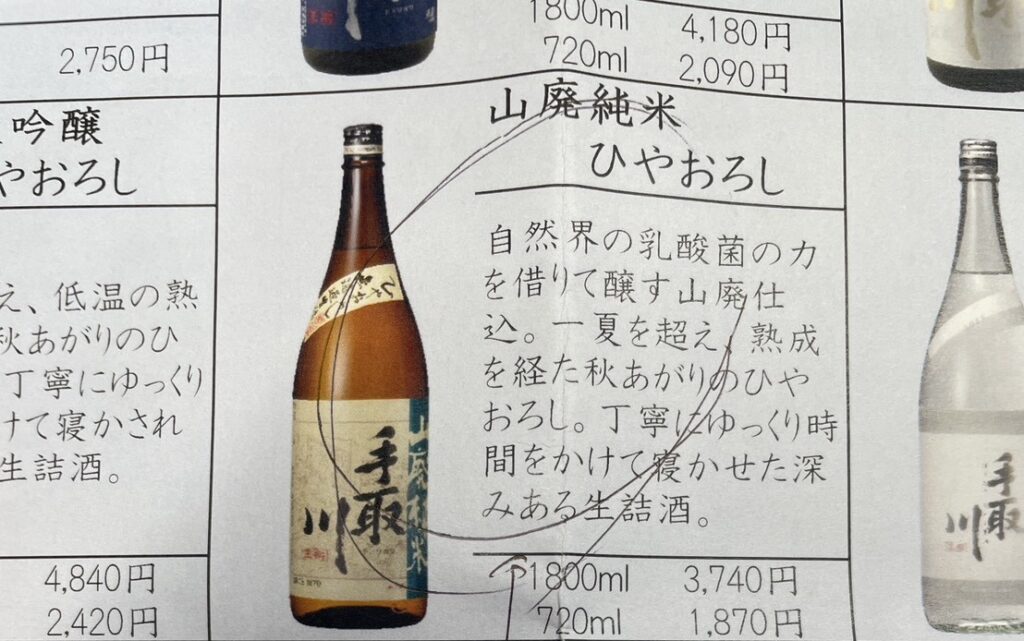 2,750円
1800ml 4,180円
720ml 2,090円
吟醸
やおろし
え、低温の熟
秋あがりのひ
丁寧にゆっくり
けて寝かされ
生詰酒。
4,840円
2,420円
ひやおろし
山廃純米
手取川
山廃純米
ひやおろし
自然界の乳酸菌の力
を借りて醸す山廃仕
込。一夏を超え、熟成
を経た秋あがりのひや
おろし。丁寧にゆっくり時
間をかけて寝かせた深
みある生詰酒。
1800ml 3,740円
720ml 1,870円
手取川